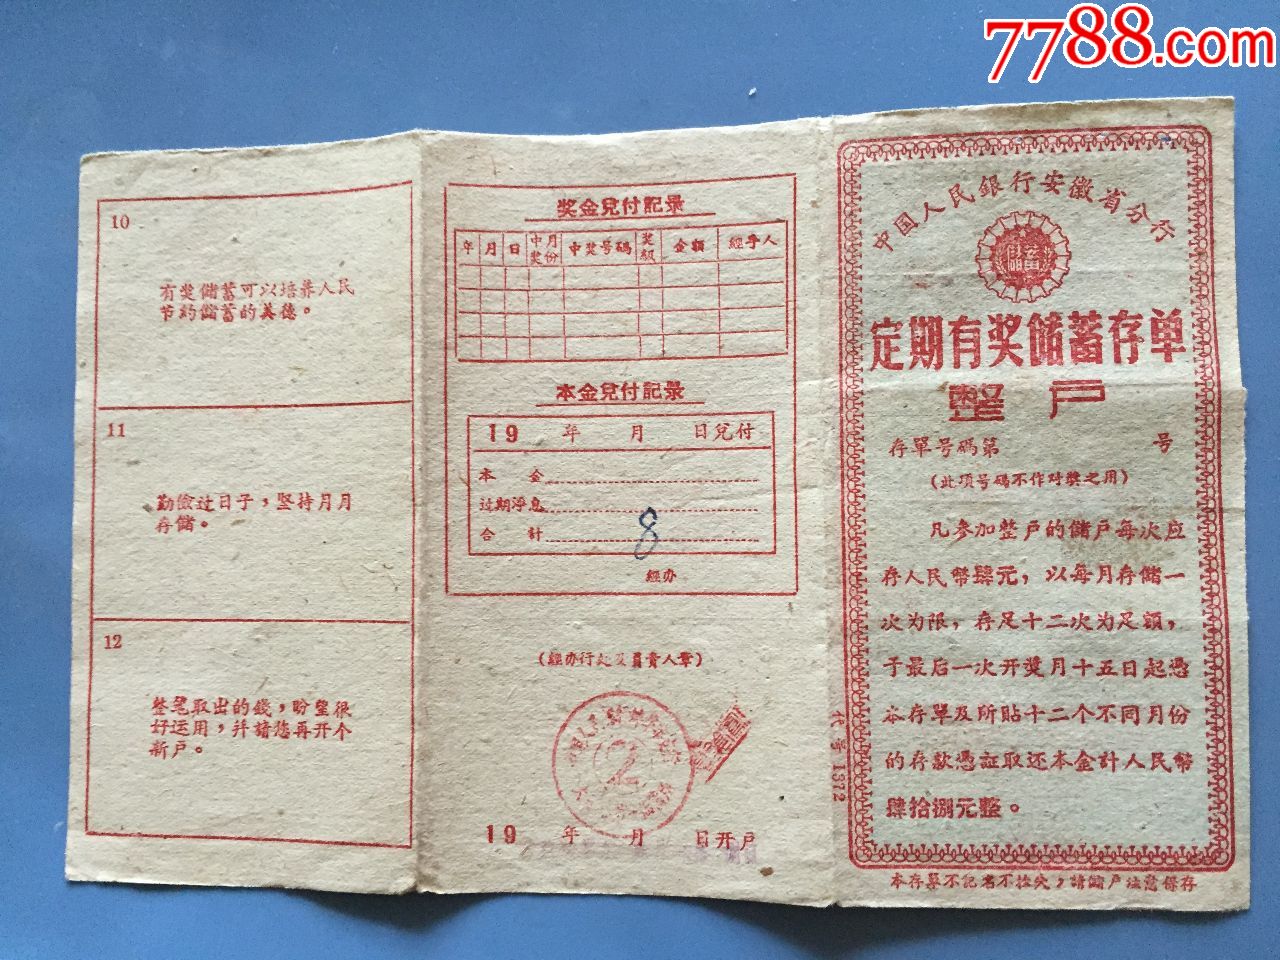 7788.com
中国人民銀行安徽省分行
儲蓄
定期有奖儲蓄存单
整戶
存單号碼第 号
(此項号碼不作对獎之用)
凡参加整戶的儲戶每次应
存人民幣肆元，以每月存儲一
次为限，存足十二次为足額，
于最后一次开奬月十五日起憑
本存單及所貼十二个不同月份
的存款憑証取还本金計人民幣
肆拾捌元整。
本存單不記名不挂失，請儲戶注意保存
代号1372
奖金兌付記录
年 月 日 中奖月份 中奖号碼 奖級 金額 經手人
本金兌付記录
19 年 月 日兌付
本 金
过期淨息
合 計
8
經办
(經办行处及負責人章)
2
19 年 月 日开戶
10
有奖儲蓄可以培养人民
节約儲蓄的美德。
11
勤儉过日子，堅持月月
存儲。
12
整笔取出的錢，盼望很
好运用，幷請您再开个
新戶。